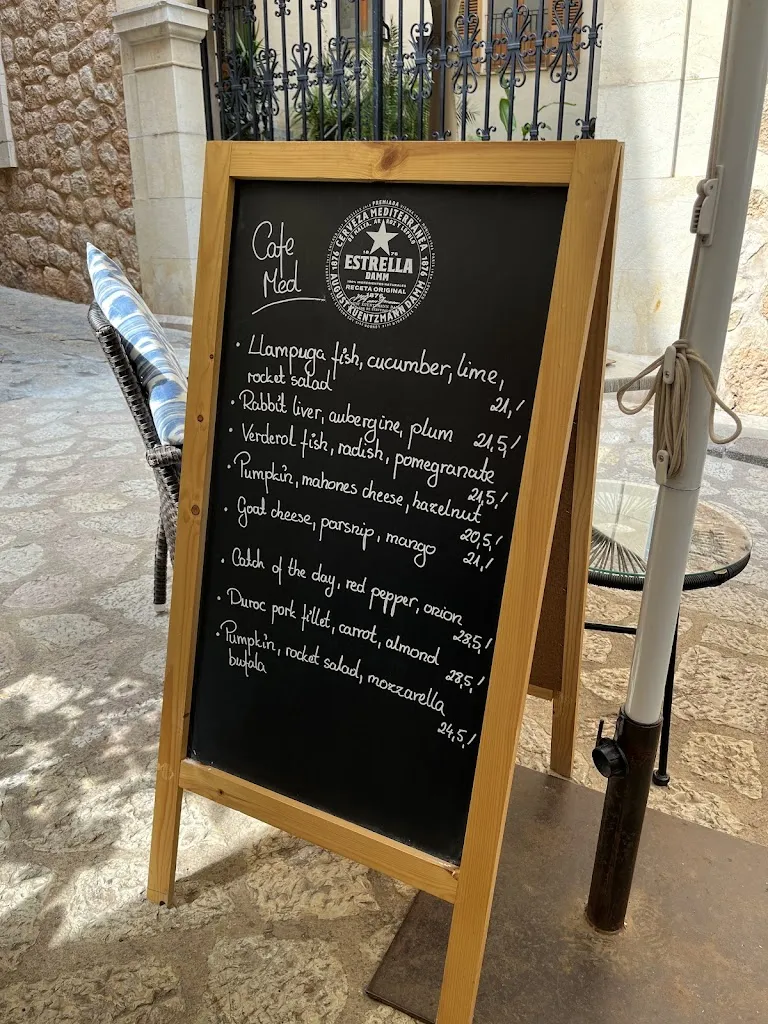 Cafe
Med
PREMIADA
CERVEZA MEDITERRÁNEA
DE MALTA, ARROZ Y LÚPULO
1876
1876
ESTRELLA
DAMM
100% INGREDIENTES NATURALES
RECETA ORIGINAL
1876
AUGUST KUENTZMANN DAMM
• Llampuga fish, cucumber, lime,
rocket salad 21,/
• Rabbit liver, aubergine, plum 21,5/
• Verderol fish, radish, pomegranate
21,5/
• Pumpkin, mahones cheese, hazelnut
20,5/
• Goat cheese, parsnip, mango 21,/
• Catch of the day, red pepper, onion
28,5/
• Duroc pork fillet, carrot, almond 28,5,/
• Pumpkin, rocket salad, mozzarella
bufala 24,5,/